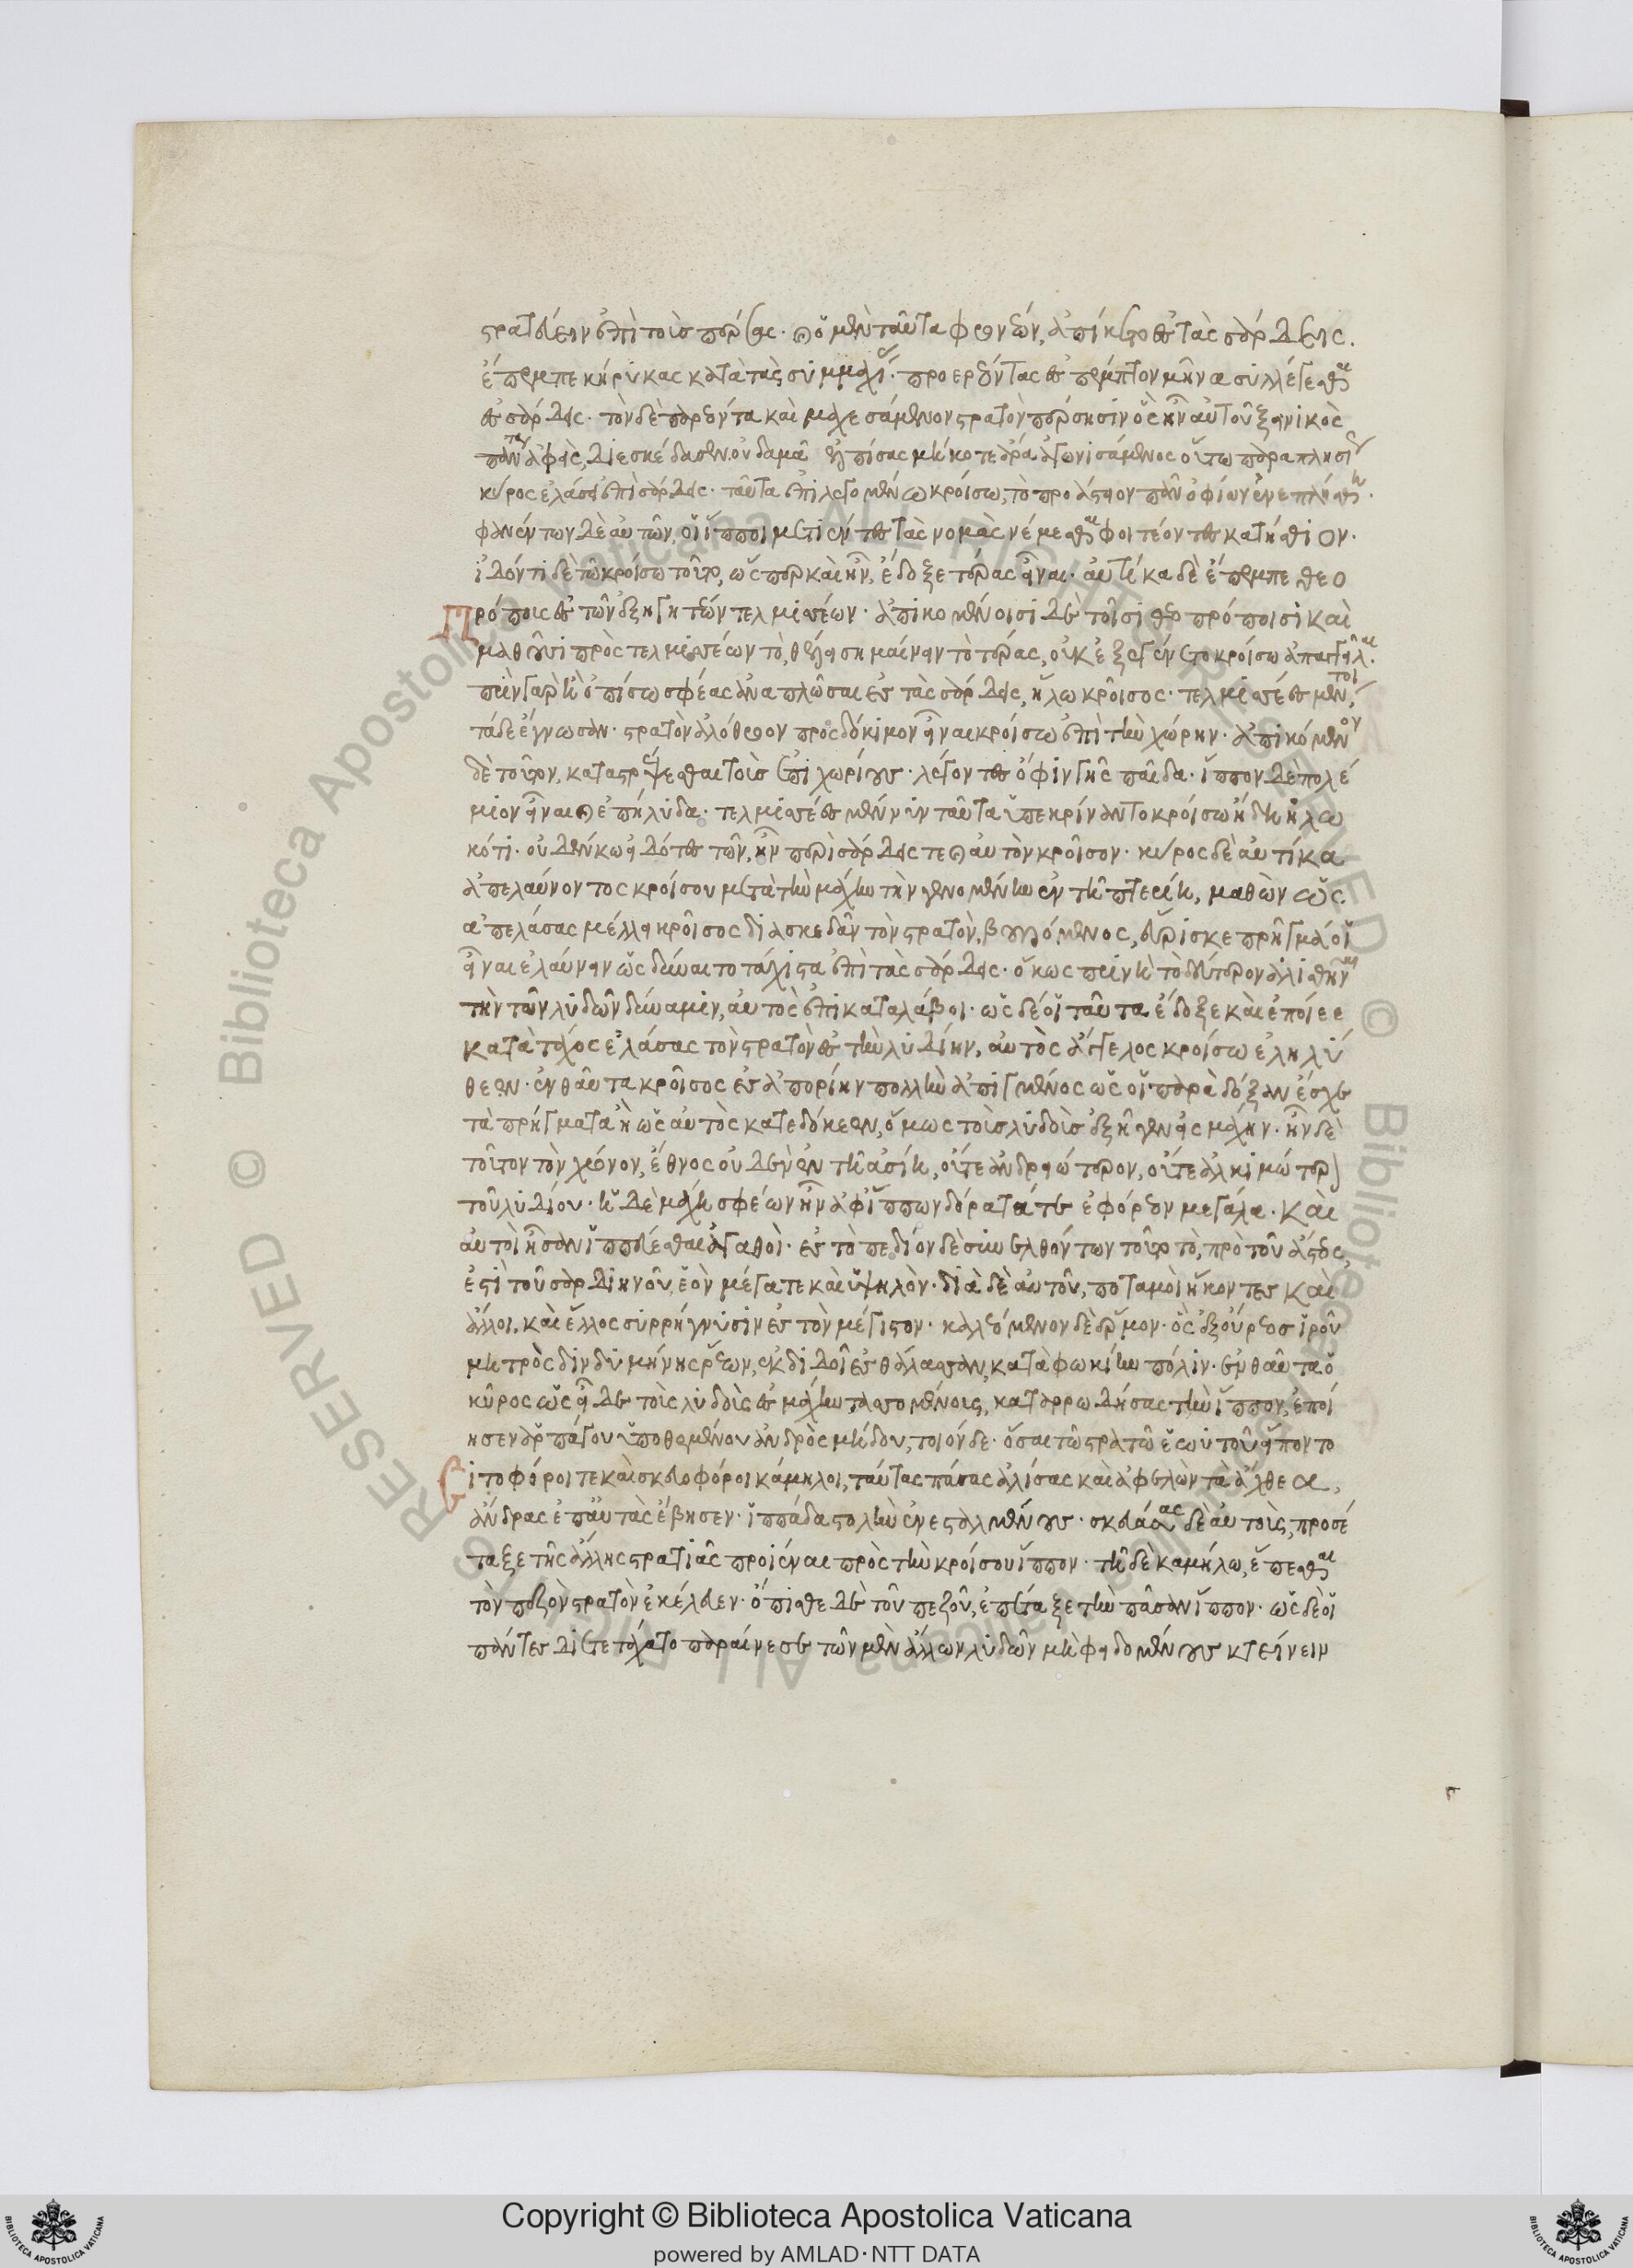 στρατεύειν ἐπὶ τοὺς πέρσας. καὶ ὁ μὲν ταῦτα φρονέων, ἀπίκετο ἐς τὰς σάρδεις.
ἔπεμπε κήρυκας κατὰ τὰς συμμαχίας. προερέοντας ἐς πέμπτον μῆνα συλλέγεσθαι
ἐς σάρδις. τὸν δὲ παρεόντα καὶ μαχεσάμενον στρατὸν πέρσησιν ὃς ἦν αὐτοῦ ξεινικὸς
πάντα ἀφεὶς, διεσκέδασεν. οὐδαμᾶ ἐλπίσας μή κοτε ἄρα ἀγωνισάμενος οὕτω παραπλησίως
κῦρος ἐλάσει ἐπὶ σάρδις. ταῦτα ἐπιλεγομένω κροίσω, τὸ προάστειον πᾶν ὀφίων ἐνεπλήσθη.
φανέντων δὲ αὐτῶν, οἱ ἵπποι μετιέντες τὰς νομὰς νέμεσθαι φοιτέοντες κατήσθιον.
ἰδόντι δὲ τῶ κροίσω τοῦτο, ὥσπερ καὶ ἦν, ἔδοξε τέρας εἶναι. αὐτίκα δὲ ἔπεμπε θεο
πρόπους ἐς τῶν ἐξηγητέων τελμισσέων. ἀπικομένοισι δὲ τοῖσι θεοπρόποισι καὶ
μαθοῦσι πρὸς τελμισσέων τὸ, θέλει σημαίνειν τὸ τέρας, οὐκ ἐξεγένετο κροίσω ἀπαγγεῖλαι.
πρὶν γὰρ ἢ ὀπίσω σφέας ἀναπλῶσαι ἐς τὰς σάρδις, ἥλω κροῖσος. τελμισσέες μέντοι,
τάδε ἔγνωσαν. στρατὸν ἀλόθροον προσδόκιμον εἶναι κροίσω ἐπὶ τὴν χώρην. ἀπικόμενον
δὲ τοῦτον, καταστρέψεσθαι τοὺς ἐπιχωρίους. λέγοντες ὄφιν γῆς παῖδα. ἵππον δὲ πολέ
μιον εἶναι καὶ ἐπήλυδα. τελμισσέες μέν νυν ταῦτα ὑπεκρίναντο κροίσω ἤδη ἡλω
κότι. οὐδέν κω εἰδότες τῶν, ἦν περὶ σάρδις τε καὶ αὐτὸν κροῖσον. κῦρος δὲ αὐτίκα
ἀπελαύνοντος κροίσου μετὰ τὴν μάχην τὴν γενομένην ἐν τῆ πτερίη, μαθὼν ὡς
ἀπελάσας μέλλει κροῖσος διασκεδᾶν τὸν στρατὸν, βουλόμενος, εὕρισκε πρῆγμά οἱ
εἶναι ἐλαύνειν ὡς δύναιτο τάχιστα ἐπὶ τὰς σάρδις. ὅκως πρὶν ἢ τὸ δεύτερον ἁλισθῆναι
τὴν τῶν λυδῶν δύναμιν, αὐτὸς ἐπικαταλάβοι. ὡς δέ οἱ ταῦτα ἔδοξε καὶ ἐποίεε
κατὰ τάχος ἐλάσας τὸν στρατὸν ἐς τὴν λυδίην, αὐτὸς ἄγγελος κροίσω ἐληλύ
θεεν. ἐνθαῦτα κροῖσος ἐς ἀπορίην πολλὴν ἀπιγμένος ὥς οἱ παρὰ δόξαν ἔσχε
τὰ πρήγματα ἢ ὡς αὐτὸς κατεδόκεεν, ὅμως τοὺς λυδοὺς ἐξῆγεν εἰς μάχην. ἦν δὲ
τοῦτον τὸν χρόνον, ἔθνος οὐδὲν ἐν τῆ ἀσίη, οὔτε ἀνδρειότερον, οὔτε ἀλκιμώτερον
τοῦ λυδίου. ἡ δὲ μάχη σφέων ἦν ἀφ' ἵππων δόρατά τε ἐφόρεον μεγάλα. καὶ
αὐτοὶ ἦσαν ἱππεύεσθαι ἀγαθοί. ἐς τὸ πεδίον δὲ συνελθόντων τοῦτο τὸ, πρὸ τοῦ ἄστεος,
ἐστὶ τοῦ σαρδιηνοῦ, ἐὸν μέγα τε καὶ ὑψηλὸν. διὰ δὲ αὐτοῦ, ποταμοὶ ἥκοντες καὶ
ἄλλοι, καὶ ἕλλος συρρήγνυσιν ἐς τὸν μέγιστον. καλεόμενον δὲ ἕρμον. ὃς ἐξ οὔρεος ἱροῦ
μητρὸς δινδυμήνης ῥέων, ἐκδιδοῖ ἐς θάλασσαν, κατὰ φωκίην πόλιν. ἐνθαῦτα ὁ
κῦρος ὡς εἶδε τοὺς λυδοὺς ἐς μάχην τασσομένους, καταρρωδήσας τὴν ἵππον, ἐποί
ησεν ἁρπάγου ὑποθεμένου ἀνδρὸς μήδου, τοιόνδε. ὅσαι τῶ στρατῶ ἑωυτοῦ εἵποντο
σιτοφόροι τε καὶ σκευοφόροι κάμηλοι, ταύτας πάσας ἁλίσας καὶ ἀφελὼν τὰ ἄχθεα,
ἄνδρας ἐπ' αὐτὰς ἔβησεν. ἱππάδα στολὴν ἐνεσταλμένους. σκευάσας δὲ αὐτοὺς, προσέ
ταξε τῆς ἄλλης στρατιᾶς προϊέναι πρὸς τὴν κροίσου ἵππον. τῆ δὲ καμήλω, ἕπεσθαι
τὸν πεζὸν στρατὸν ἐκέλευεν. ὄπισθε δὲ τοῦ πεζοῦ, ἐπέταξε τὴν πᾶσαν ἵππον. ὡς δέ οἱ
πάντες διετετάχατο παραίνεσε τῶν μὲν ἄλλων λυδῶν μὴ φειδομένους κτείνειν
Copyright © Biblioteca Apostolica Vaticana
powered by AMLAD·NTT DATA